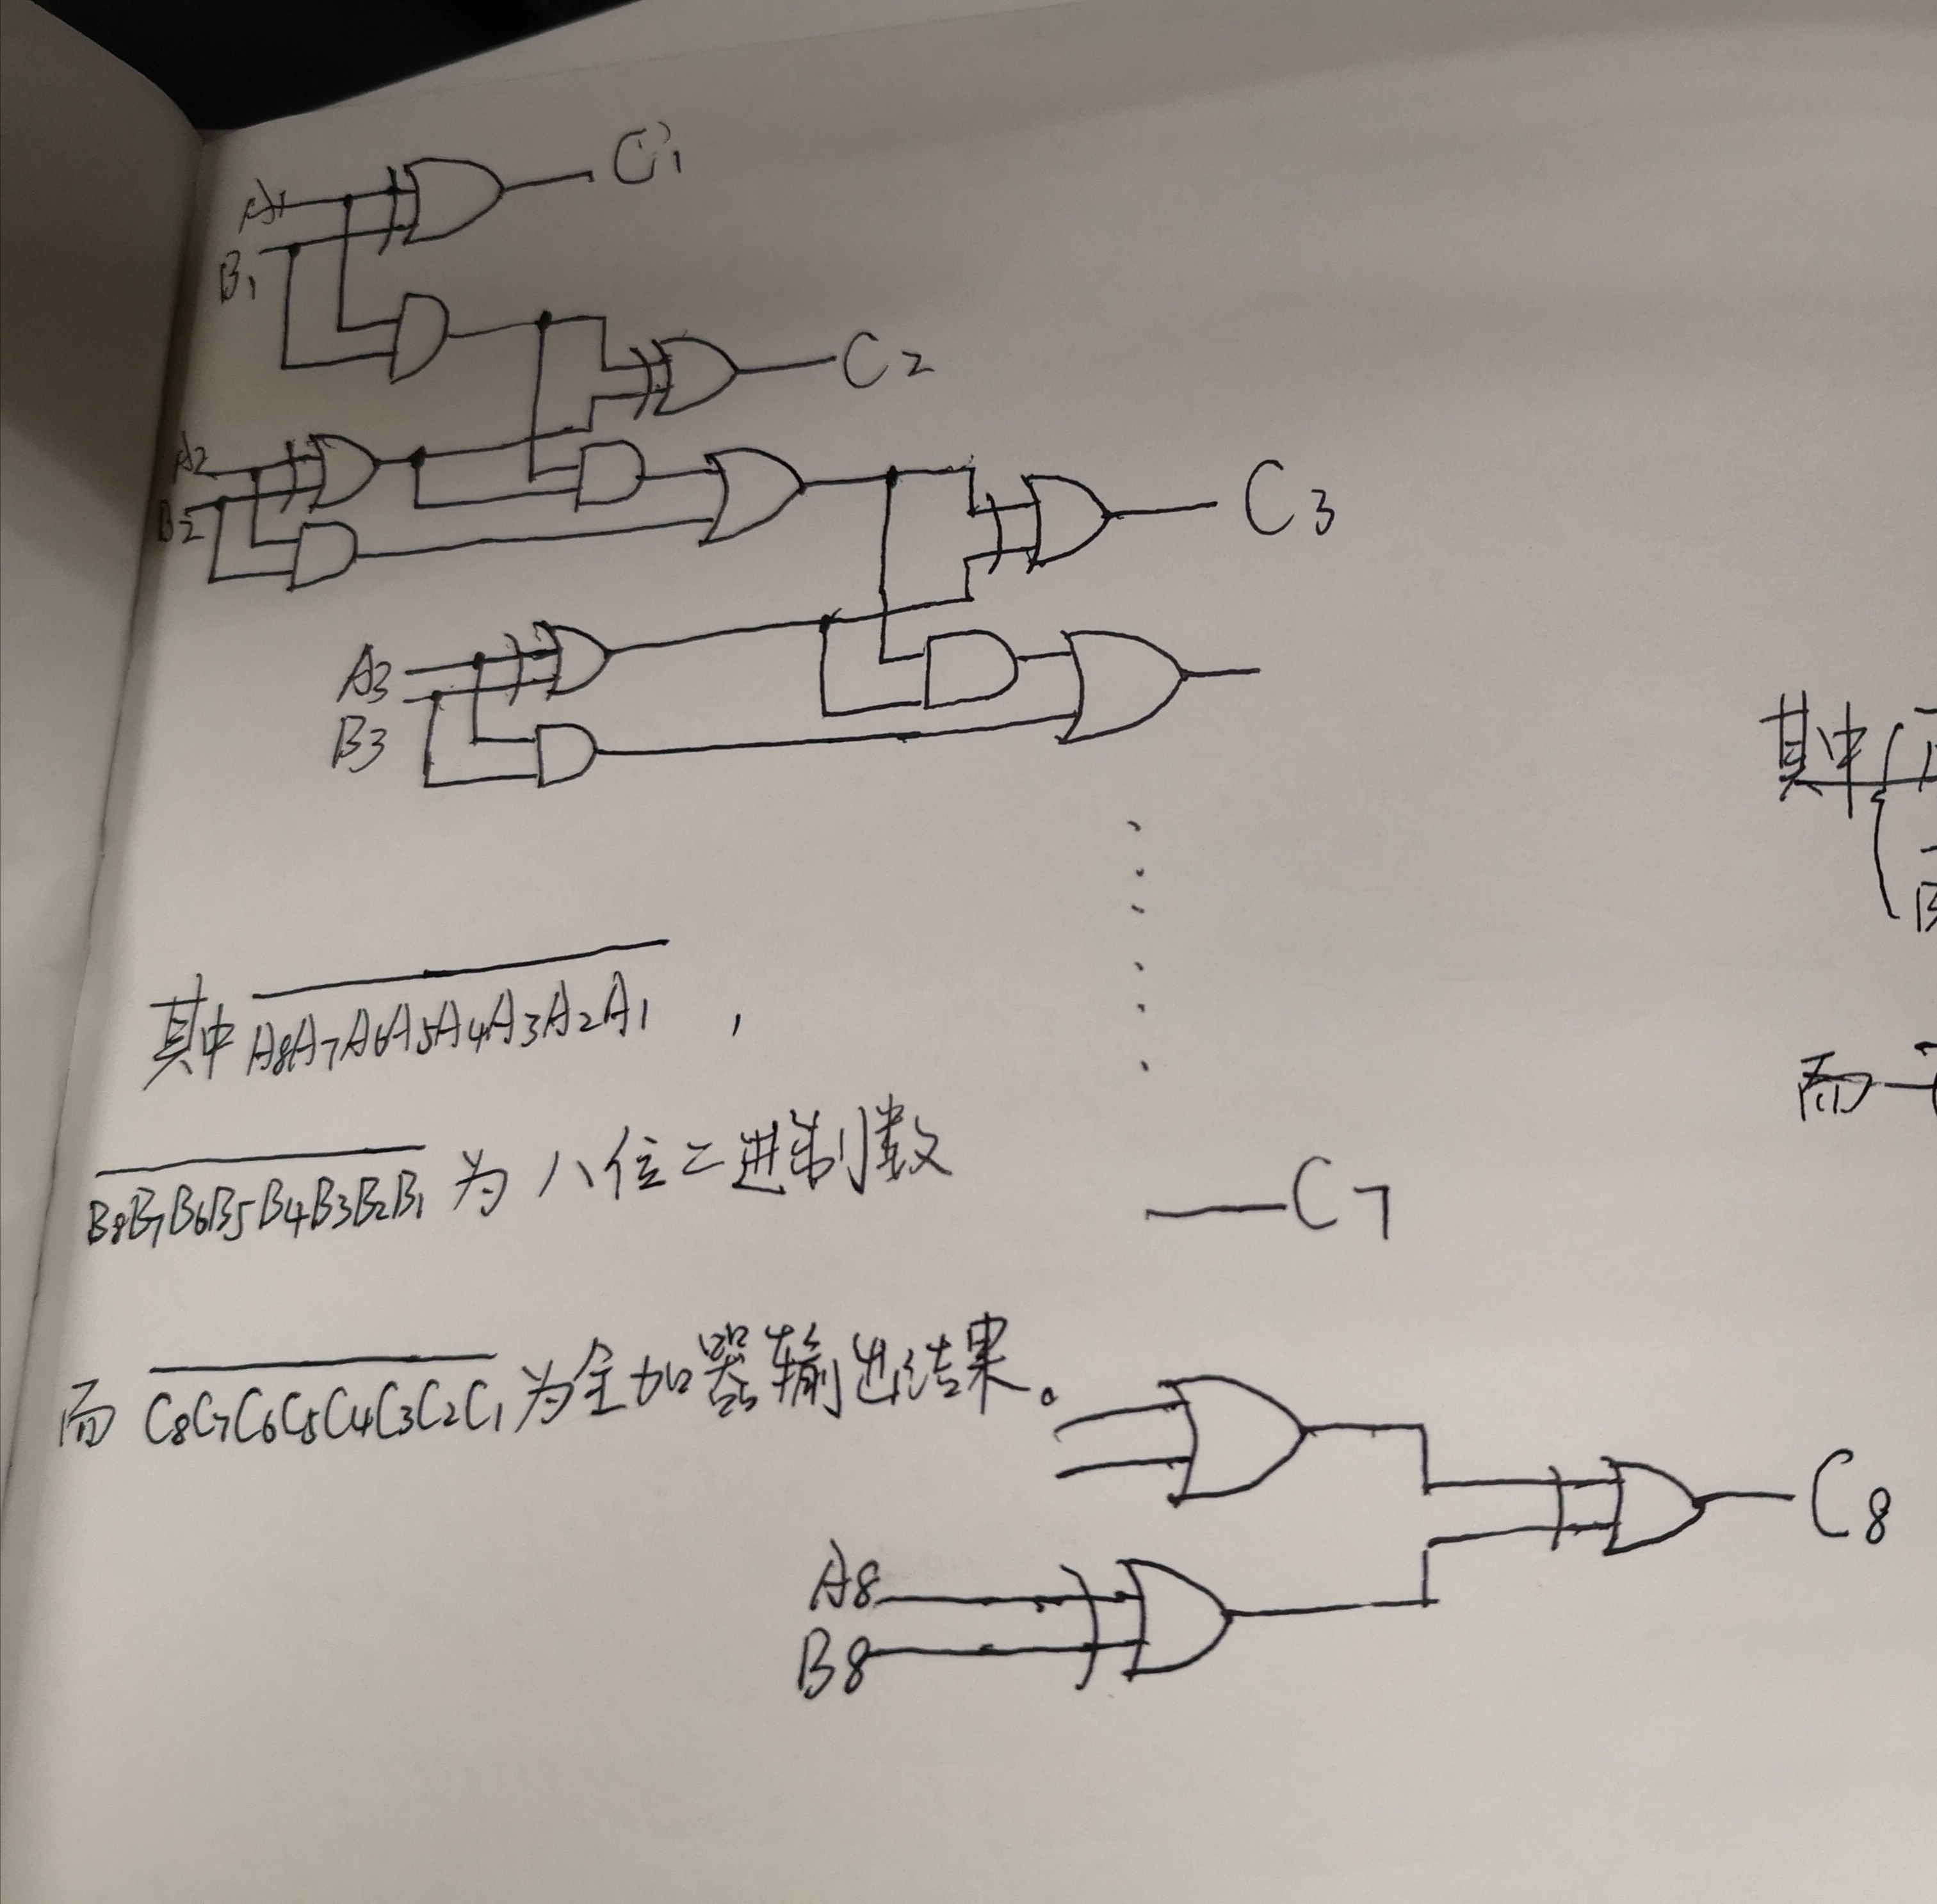 A1
B1
C1
C2
A2
B2
C3
A3
B3
其中
其中 A8A7A6A5A4A3A2A1 ,
而
B8B7B6B5B4B3B2B1 为 八位二进制数
C7
而 C8C7C6C5C4C3C2C1 为全加器输出结果。
C8
A8
B8